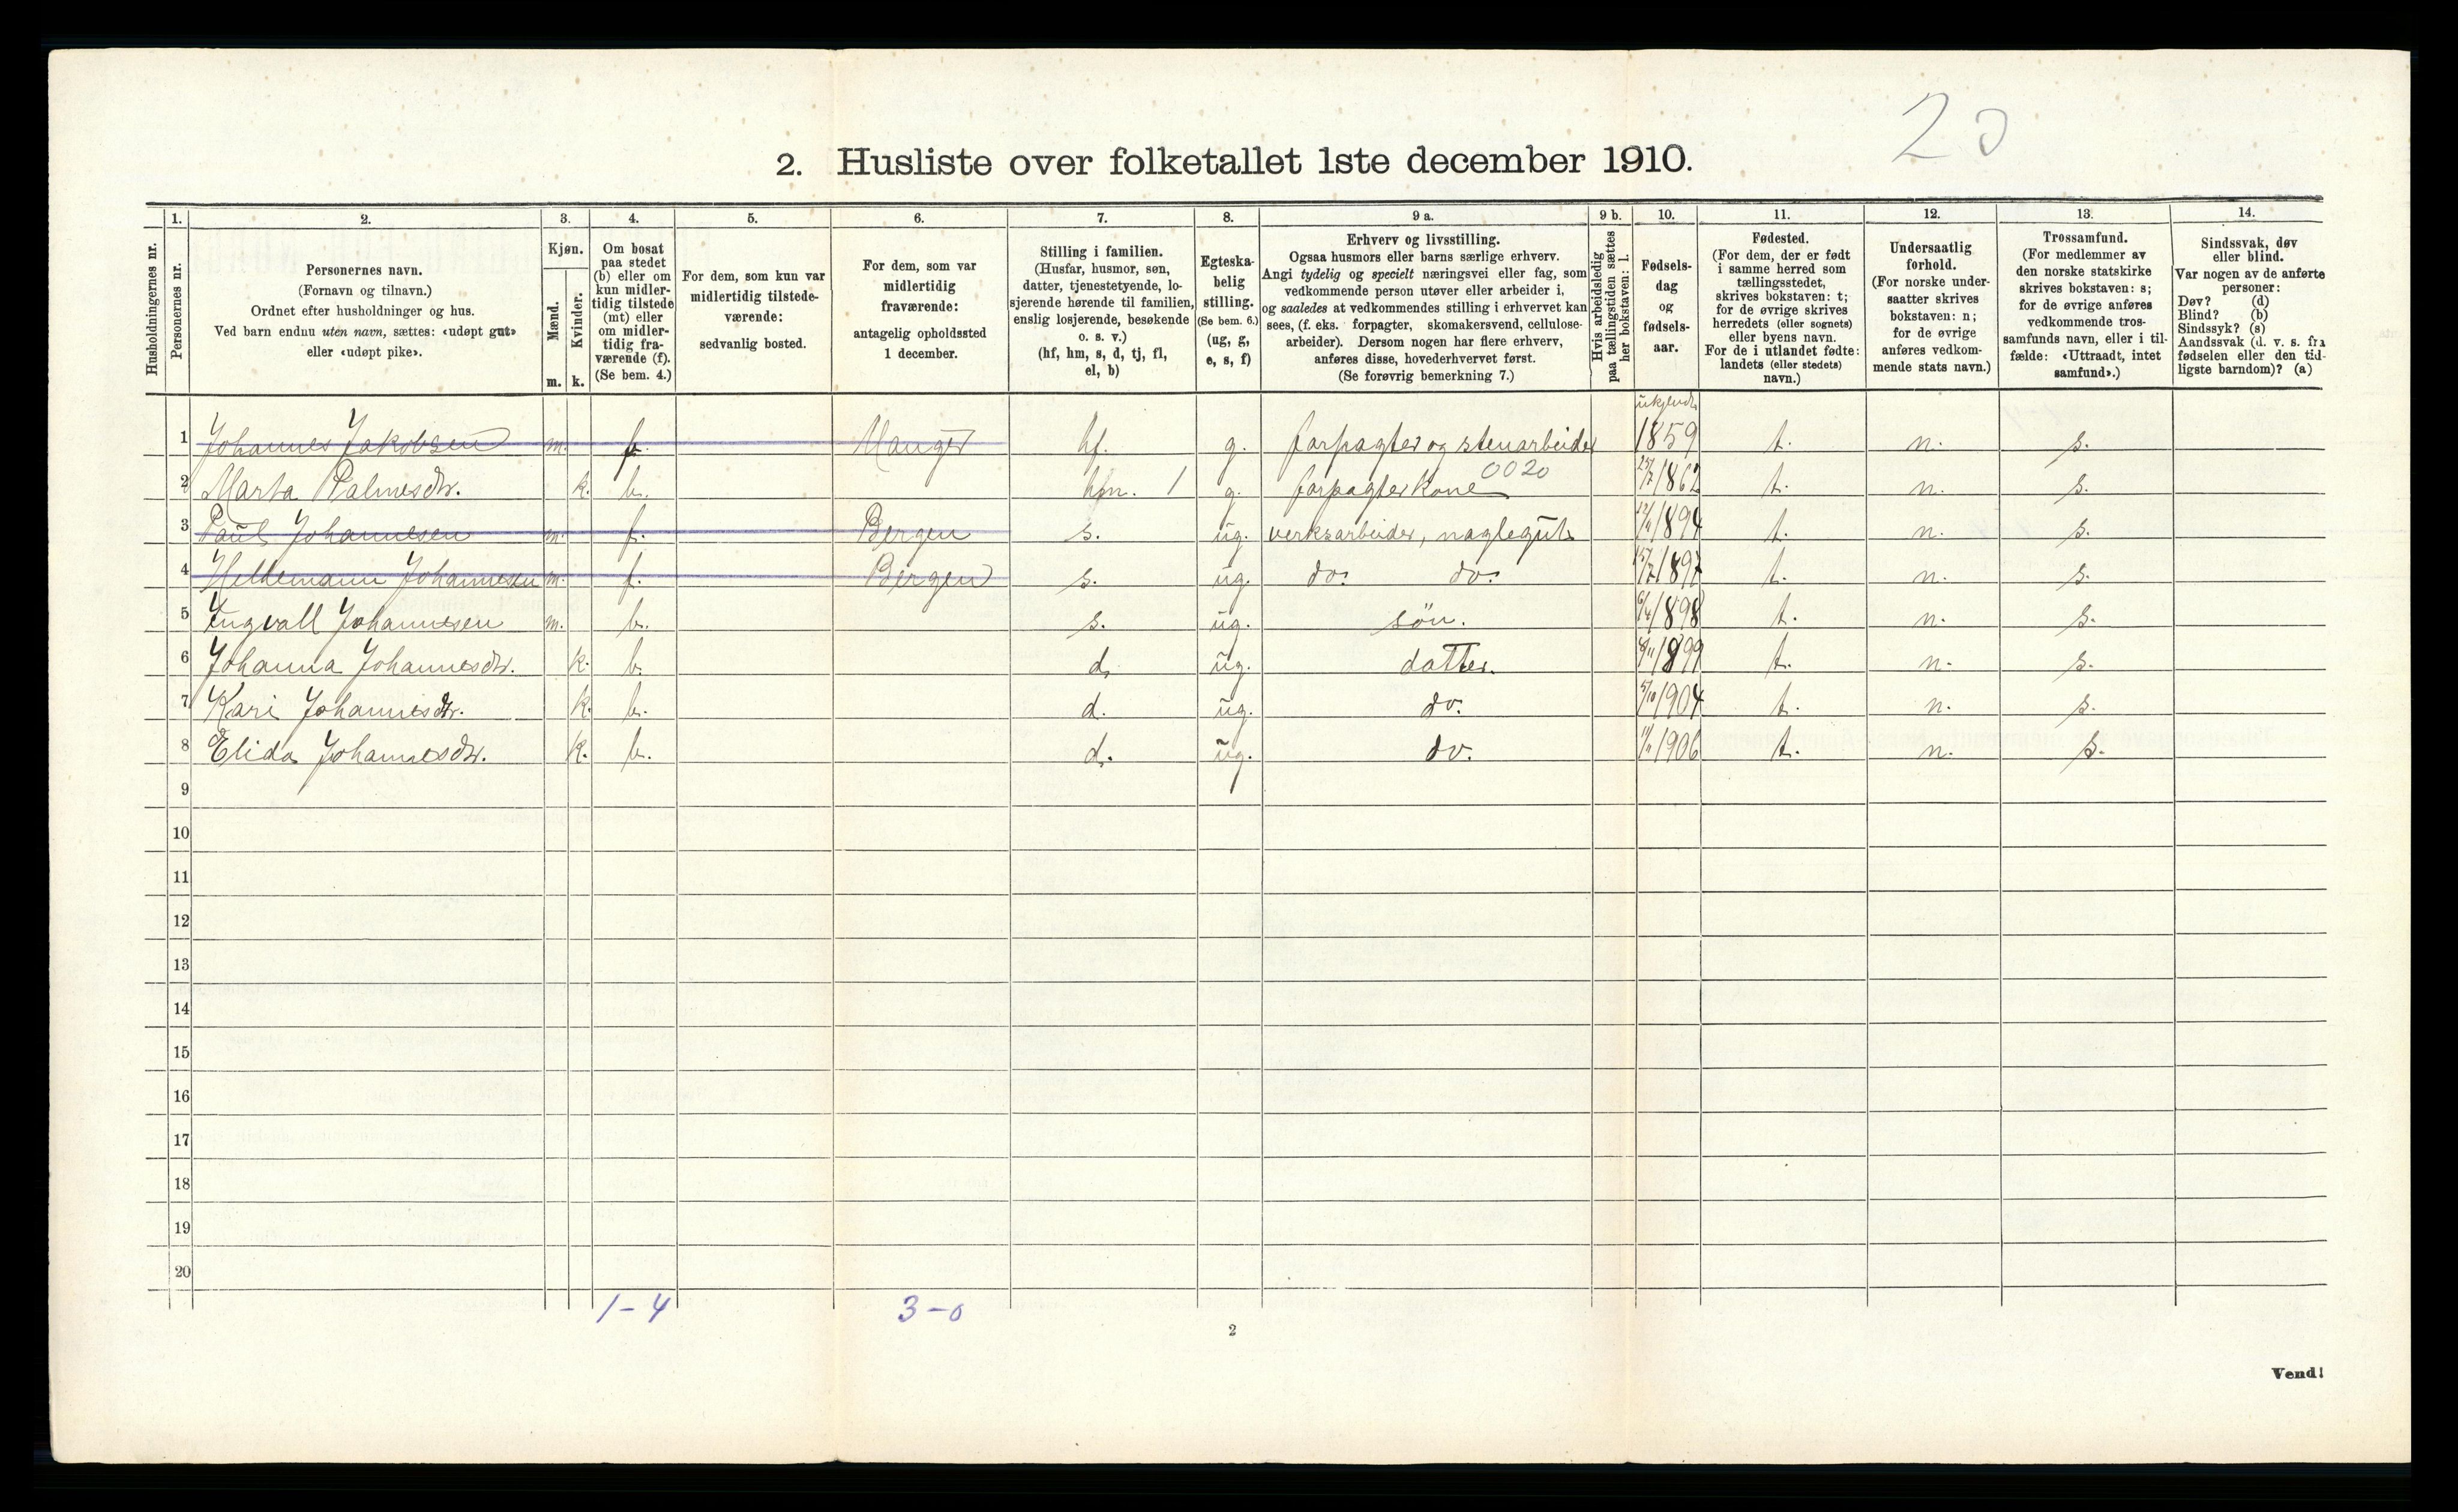 20
2. Husliste over folketallet 1ste december 1910.
Husholdningernes nr.
1.
Personernes nr.
2.
Personernes navn.
(Fornavn og tilnavn.)
Ordnet efter husholdninger og hus.
Ved barn endnu uten navn, sættes: «udøpt gut»
eller «udøpt pike».
3.
Kjøn.
Mænd.
Kvinder.
m. k.
4.
Om bosat
paa stedet
(b) eller om
kun midler-
tidig tilstede
(mt) eller
om midler-
tidig fra-
værende (f).
(Se bem. 4.)
5.
For dem, som kun var
midlertidig tilstede-
værende:
sedvanlig bosted.
6.
For dem, som var
midlertidig
fraværende:
antagelig opholdssted
1 december.
7.
Stilling i familien.
(Husfar, husmor, søn,
datter, tjenestetyende, lo-
sjerende hørende til familien,
enslig losjerende, besøkende
o. s. v.)
(hf, hm, s, d, tj, fl,
el, b)
8.
Egteska-
belig
stilling.
(Se bem. 6.)
(ug, g,
e, s, f)
9 a.
Erhverv og livsstilling.
Ogsaa husmors eller barns særlige erhverv.
Angi tydelig og specielt næringsvei eller fag, som
vedkommende person utøver eller arbeider i,
og saaledes at vedkommendes stilling i erhvervet kan
sees, (f. eks. forpagter, skomakersvend, cellulose-
arbeider). Dersom nogen har flere erhverv,
anføres disse, hovederhvervet først.
(Se forøvrig bemerkning 7.)
9 b.
Hvis arbeidsledig
paa tællingstiden sættes
her bokstaven: l.
10.
Fødsels-
dag
og
fødsels-
aar.
11.
Fødested.
(For dem, der er født
i samme herred som
tællingsstedet,
skrives bokstaven: t;
for de øvrige skrives
herredets (eller sognets)
eller byens navn.
For de i utlandet fødte:
landets (eller stedets)
navn.)
12.
Undersaatlig
forhold.
(For norske under-
saatter skrives
bokstaven: n;
for de øvrige
anføres vedkom-
mende stats navn.)
13.
Trossamfund.
(For medlemmer av
den norske statskirke
skrives bokstaven: s;
for de øvrige anføres
vedkommende tros-
samfunds navn, eller i til-
fælde: «Uttraadt, intet
samfund».)
14.
Sindssvak, døv
eller blind.
Var nogen av de anførte
personer:
Døv? (d)
Blind? (b)
Sindssyk? (s)
Aandssvak (d. v. s. fra
fødselen eller den tid-
ligste barndom)? (a)
1 Johannes Jakobsen m. f. Manger hf. g. forpagter og stenarbeider ukjendt 1859 t. n. s.
2 Marta Palmesdtr. k. b. hm. 1 g. forpagterkone 0020 1862 t. n. s.
3 Paul Johannesen m. f. Bergen s. ug. verksarbeider, naglegut 1894 t. n. s.
4 Johannesen m. f. Bergen s. ug. do. do. 1897 t. n. s.
5 Ingvall Johannesen m. b. s. ug. sön. 6/4 1898 t. n. s.
6 Johanna Johannesdtr. k. b. d. ug. datter. 1899 t. n. s.
7 Kari Johannesdtr. k. b. d. ug. do. 5/10 1904 t. n. s.
8 Elida Johannesdtr. k. b. d. ug. do. 1906 t. n. s.
9
10
11
12
13
14
15
16
17
18
19
20
1-4 3-0
2
Vend!